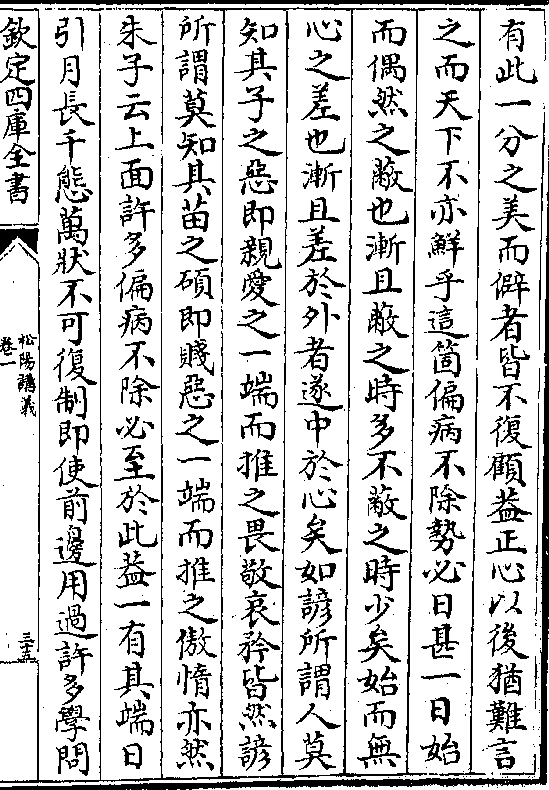 有此一分之美而僻者皆不復顧葢正心以後猶難言
之而天下不亦鮮乎這箇偏病不除勢必日甚一日始
而偶然之蔽也漸且蔽之時多不蔽之時少矣始而無
心之差也漸且差於外者遂中於心矣如諺所謂人莫
知其子之惡即親愛之一端而推之畏敬哀矜皆然諺
所謂莫知其苗之碩即賤惡之一端而推之傲惰亦然
朱子云上面許多偏病不除必至於此葢一有其端日
引月長千態萬狀不可復制即使前邊用過許多學問
欽定四庫全書
松陽講義
卷一
三五